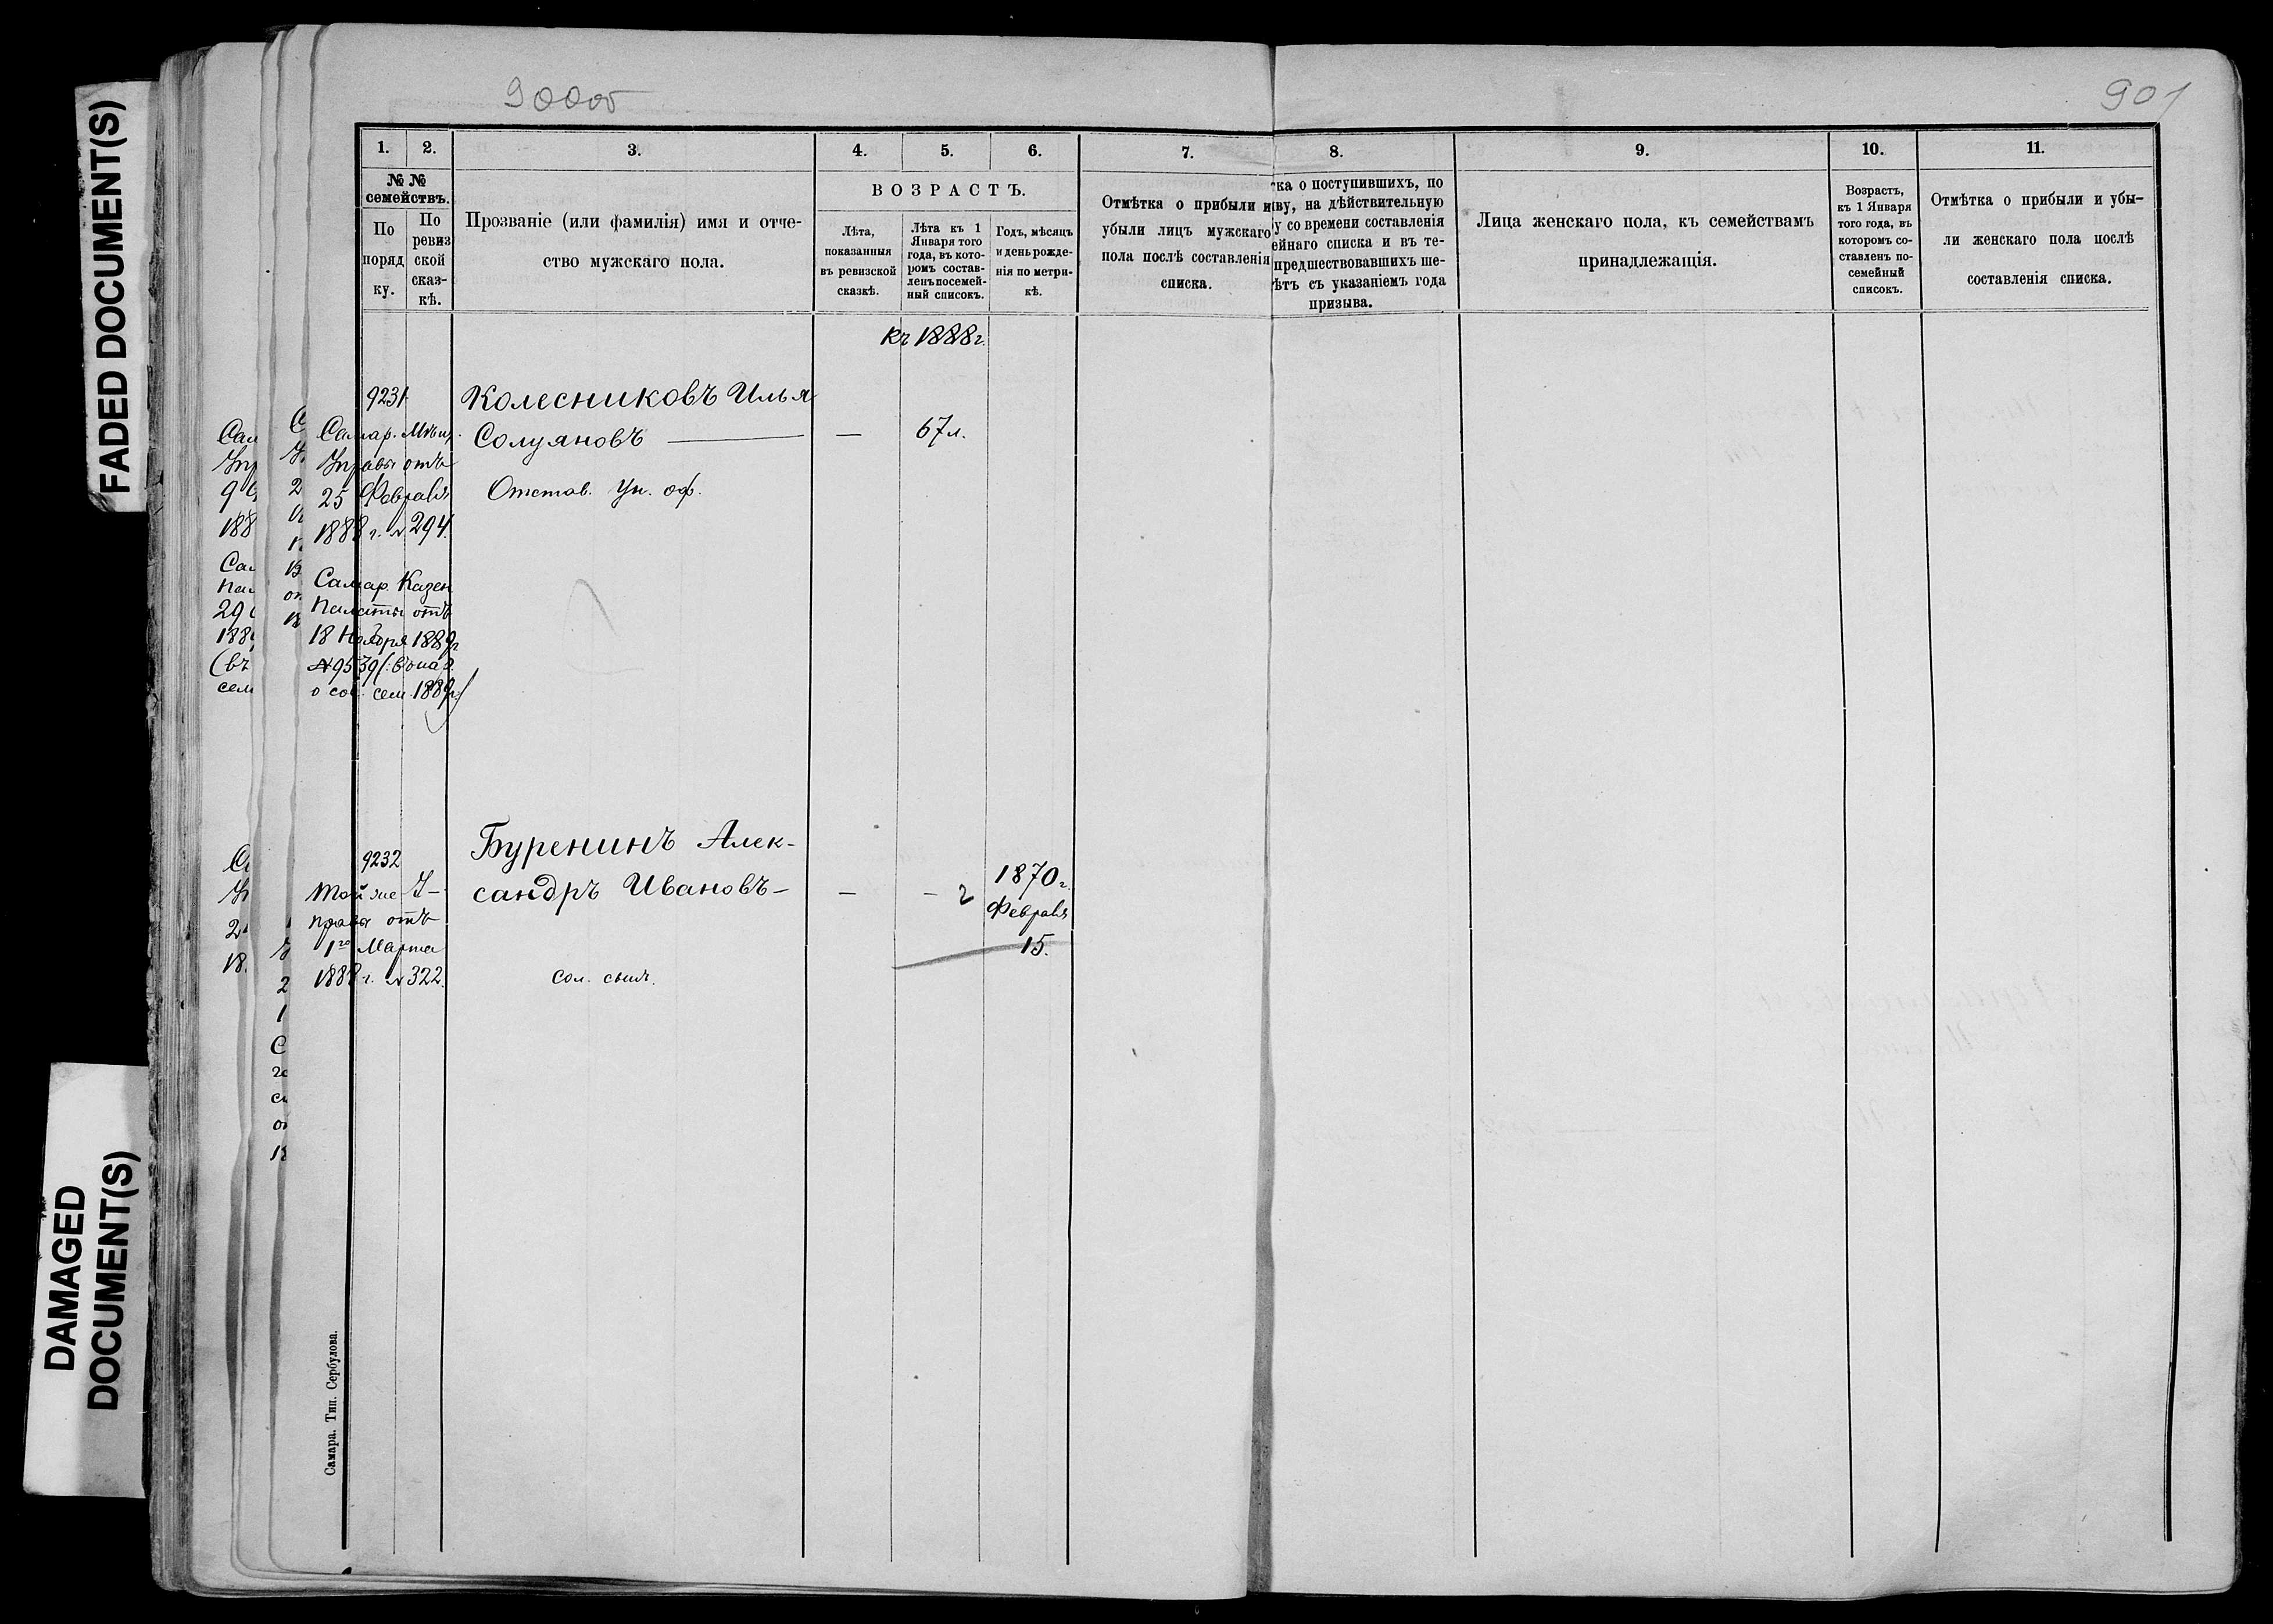 FADED DOCUMENT(S)
DAMAGED
DOCUMENT(S)
901
1.
2.
3.
4.
5.
6.
7.
8.
9.
10.
11.
№ №
семействъ.
По
поряд
ку.
По
ревиз
ской
сказ-
кѣ.
Прозваніе (или фамилія) имя и отче-
ство мужскаго пола.
ВОЗРАСТЪ.
Лѣта,
показанныя
въ ревизской
сказкѣ.
Лѣта къ 1
Января того
года, въ кото-
ромъ состав-
ленъ посемей-
ный списокъ.
Годъ, мѣсяцъ
и день рожде-
нія по метри-
кѣ.
Отмѣтка о прибыли и
убыли лицъ мужскаго
пола послѣ составленія
списка.
ка о поступившихъ, по
ву, на дѣйствительную
у со времени составленія
ейнаго списка и въ те-
предшествовавшихъ ше-
ѣтъ съ указаніемъ года
призыва.
Лица женскаго пола, къ семействамъ
принадлежащія.
Возрастъ,
къ 1 Января
того года, въ
которомъ со-
ставленъ по-
семейный
списокъ.
Отмѣтка о прибыли и убы-
ли женскаго пола послѣ
составленія списка.
Къ 1888 г.
9231
Колесниковъ Илья
Солуяновъ — — 67 л.
Отстав. Ун. оф.
Самар. Мѣщ.
Управы отъ
25 Февраля
1888 г. № 294.
Самар. Казен
Палаты отъ
18 Ноября 1889 г
№ 9539 (:
о сос. сем. 1889 г.)
9232
Буренинъ Алек-
сандръ Ивановъ — — — 1870 г.
Февраля
15.
Той же У-
правы отъ
1го Марта
1888 г. № 322.
сол. сынъ.
Самара. Тип. Сербулова.